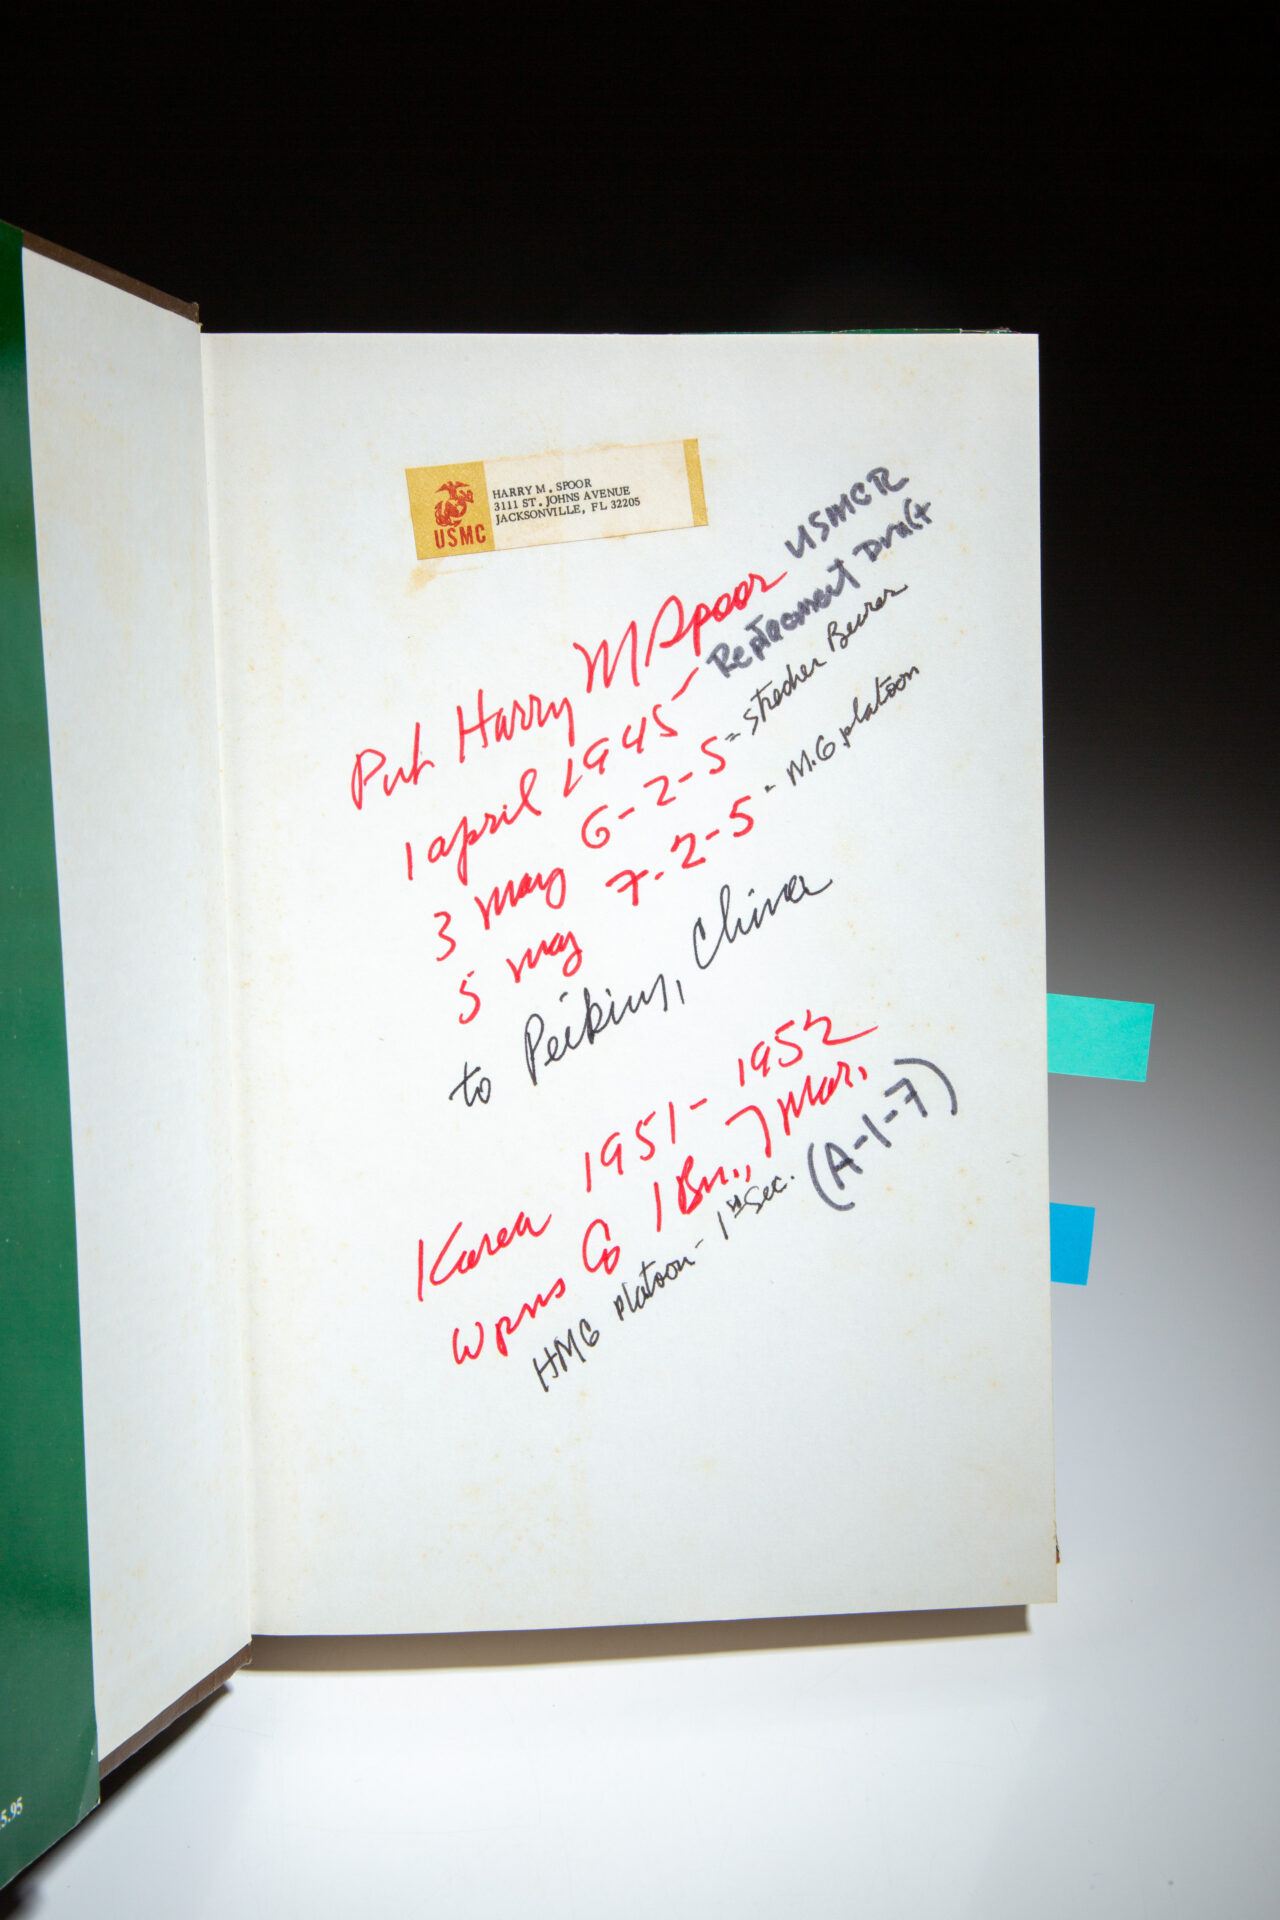 USMC
HARRY M. SPOOR
3111 ST. JOHNS AVENUE
JACKSONVILLE, FL 32205
Pvt Harry M Spoor USMCR
1 april 1945 - Replacment Draft
3 may 6-2-5 = strecher Bearer
5 may 7-2-5 - M.G. platoon
to Peiking, China
Korea 1951-1952
Wpns Co 1 Bn., 7 Mar.
HMG platoon - 1st Sec. (A-1-7)
5.95